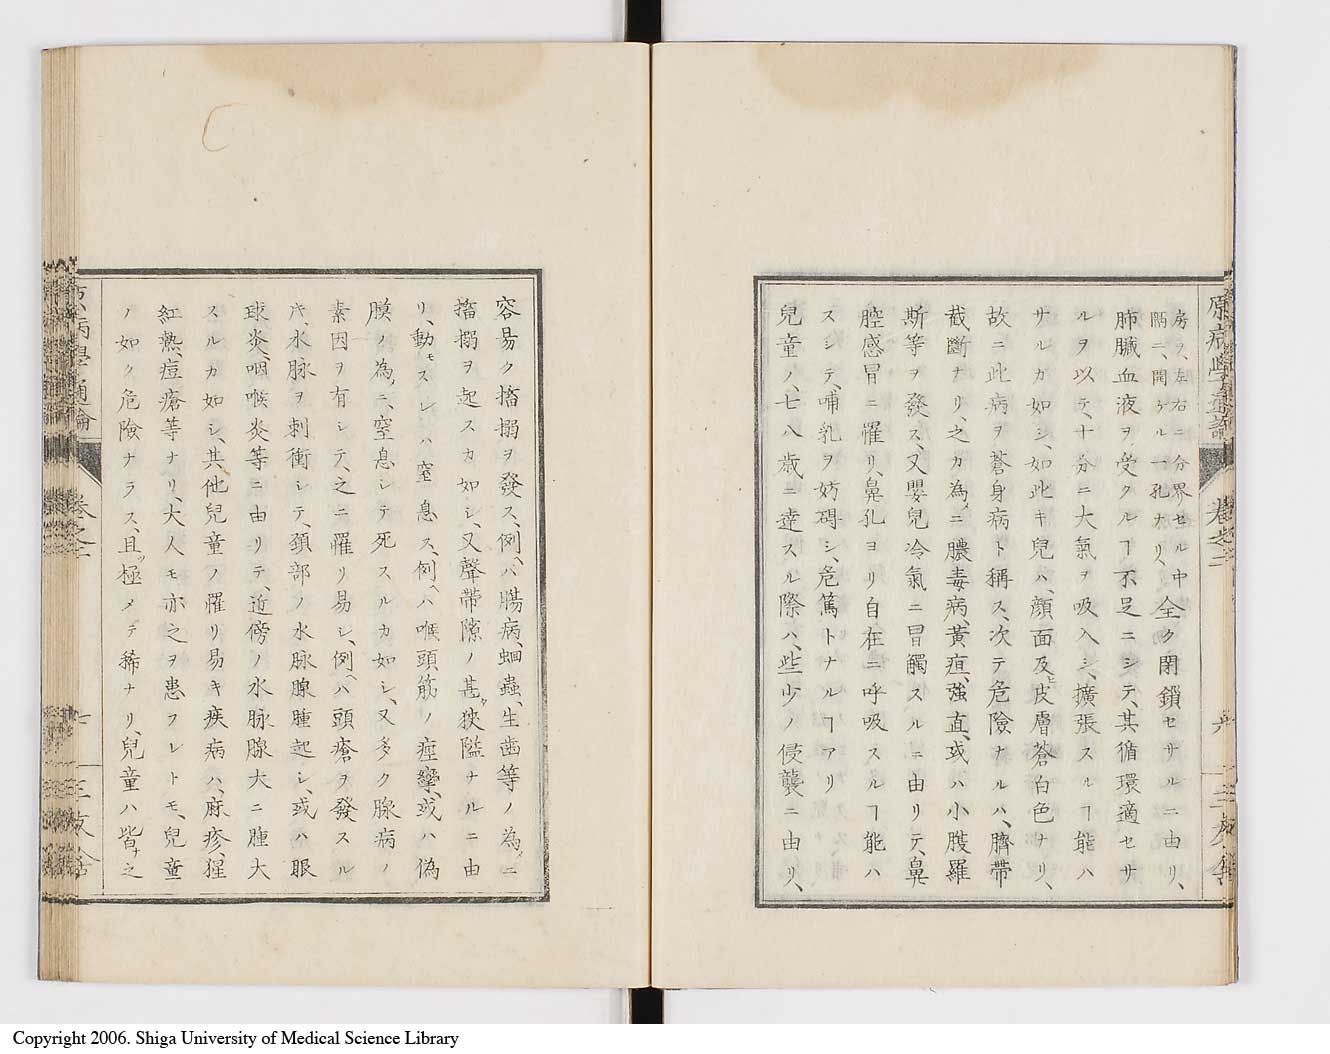 原病學通論
卷之二
六
三友舎
房ヲ、左右ニ分界セル中
膈ニ、開ケル一孔ナリ、全ク閉鎖セサルニ由リ、
肺臓血液ヲ受クルヿ不足ニシテ、其循環適セサ
ルヲ以テ、十分ニ大氣ヲ吸入シ、擴張スルヿ能ハ
サルガ如シ、如此キ兒ハ、顔面及ヒ皮膚蒼白色ナリ、
故ニ此病ヲ蒼身病ト稱ス、次テ危險ナルハ、臍帶
截斷ナリ、之カ為メニ膿毒病、黄疸、強直、或ハ小腹羅
斯等ヲ發ス、又嬰兒冷氣ニ冒觸スルニ由リテ、鼻
腔感冒ニ罹リ、鼻孔ヨリ自在ニ呼吸スルヿ能ハ
スシテ、哺乳ヲ妨碍シ、危篤トナルヿアリ
兒童ノ、七八歳ニ達スル際ハ、些少ノ侵襲ニ由リ、
容易ク搐搦ヲ發ス、例ヘハ腸病、蛔蟲、生齒等ノ為メニ
搐搦ヲ起スカ如シ、又聲帶隙ノ甚タ狹隘ナルニ由
リ、動モスレハ窒息ス、例ヘハ喉頭筋ノ痙攣、或ハ偽
膜ノ為メニ、窒息シテ死スルカ如シ、又多ク腺病ノ
素因ヲ有シテ、之ニ罹リ易シ、例ヘハ頭瘡ヲ發スル
キ、水脉ヲ刺衝シテ、頚部ノ水脉腺腫起シ、或ハ眼
球炎、咽喉炎等ニ由リテ、近傍ノ水脉腺大ニ腫大
スルカ如シ、其他兒童ノ罹リ易キ疾病ハ、麻疹、猩
紅熱、痘瘡等ナリ、大人モ亦之ヲ患フレトモ、兒童
ノ如ク危險ナラス、且ツ極メテ稀ナリ、兒童ハ皆ナ之
原病學通論
卷之二
七
三友舎
Copyright 2006. Shiga University of Medical Science Library